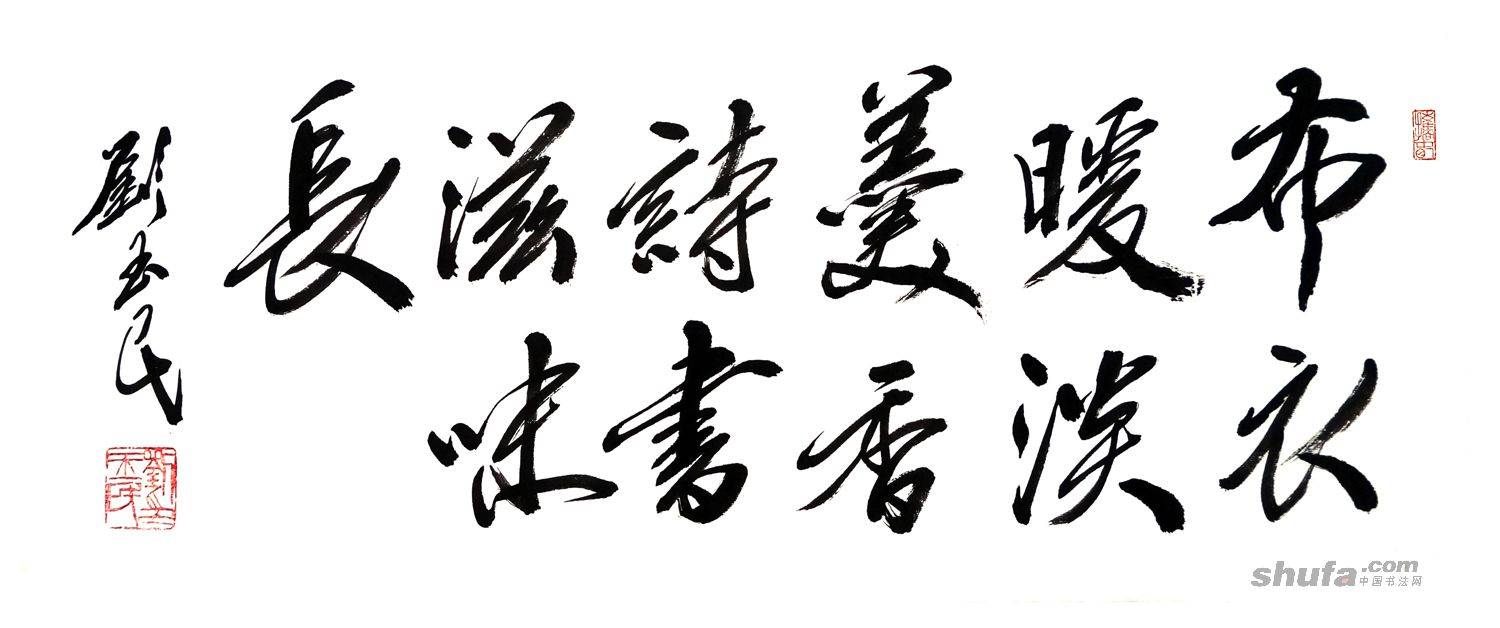 布衣
暖淡
羹香
詩書
滋味
長
劉玉民
shufa.com
中国书法网